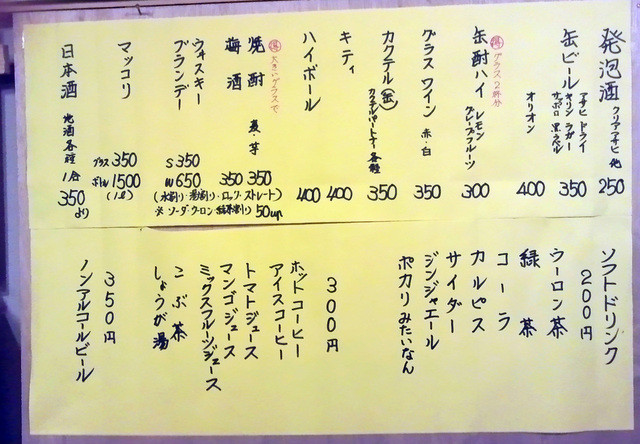 発泡酒 クリアアサヒ 他 250
缶ビール アサヒ ドライ
キリン ラガー
サッポロ 黒ラベル 350
オリオン 400
得 グラス2杯分
缶酎ハイ レモン
グレープフルーツ 300
グラスワイン 赤・白 350
カクテル(缶) カクテルパートナー 各種 350
キティ 400
ハイボール 400
得 大きいグラスで
焼酎 麦・芋 350
梅酒 350
ウィスキー
ブランデー S350
W650
(水割り・湯割り・ロック・ストレート)
※ソーダ・ウーロン・緑茶割り 50up
マッコリ グラス 350
ボトル 1500
(1ℓ)
日本酒 地酒各種 1合 350より
ソフトドリンク
200円
ウーロン茶
緑茶
コーラ
カルピス
サイダー
ジンジャエール
ポカリみたいなん
300円
ホットコーヒー
アイスコーヒー
トマトジュース
マンゴジュース
ミックスフルーツジュース
こぶ茶
しょうが湯
350円
ノンアルコールビール